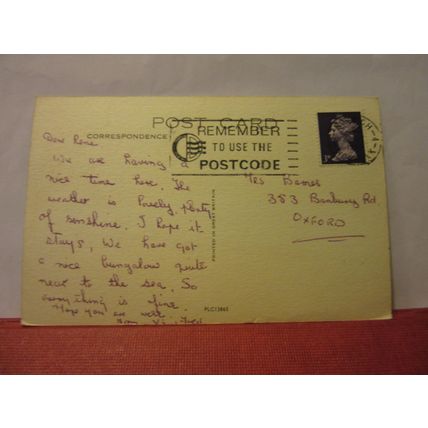 POST CARD
CORRESPONDENCE
REMEMBER
TO USE THE
POSTCODE
3P
Dear Rene
We are having a
nice time here. The
weather is lovely, plenty
of sunshine. I hope it
stays, We have got
a nice bungalow quite
near to the sea, So
everything is fine.
Hope you are well
from
Mrs Barnes
383 Banbury Rd.
OXFORD
PRINTED IN GREAT BRITAIN
PLC13865